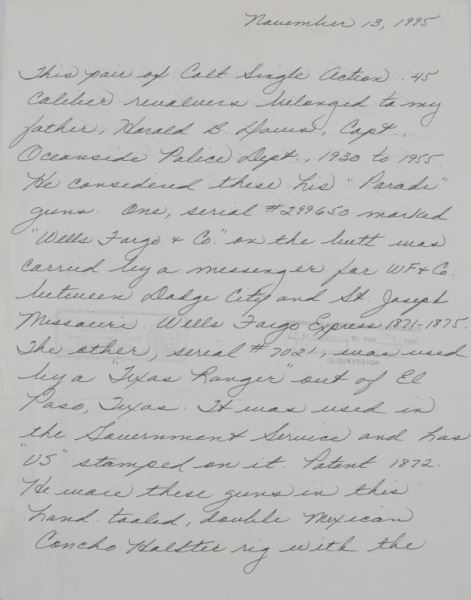 November 13, 1995
This pair of Colt Single Action .45
Caliber revolvers belonged to my
father, Harold B. Davis, Capt.,
Oceanside Police Dept., 1930 to 1955.
He considered these his "Parade"
guns. One, serial #299650 marked
"Wells Fargo & Co." on the butt was
carried by a messenger for WF & Co.
between Dodge City and St. Joseph
Missouri. Wells Fargo Express 1871-1875.
The other, serial #7021, was used
by a "Texas Ranger" out of El
Paso, Texas. It was used in
the Government Service and has
"US" stamped on it. Patent 1872.
He wore these guns in this
hand-tooled, double Mexican
Concho Holster rig with the